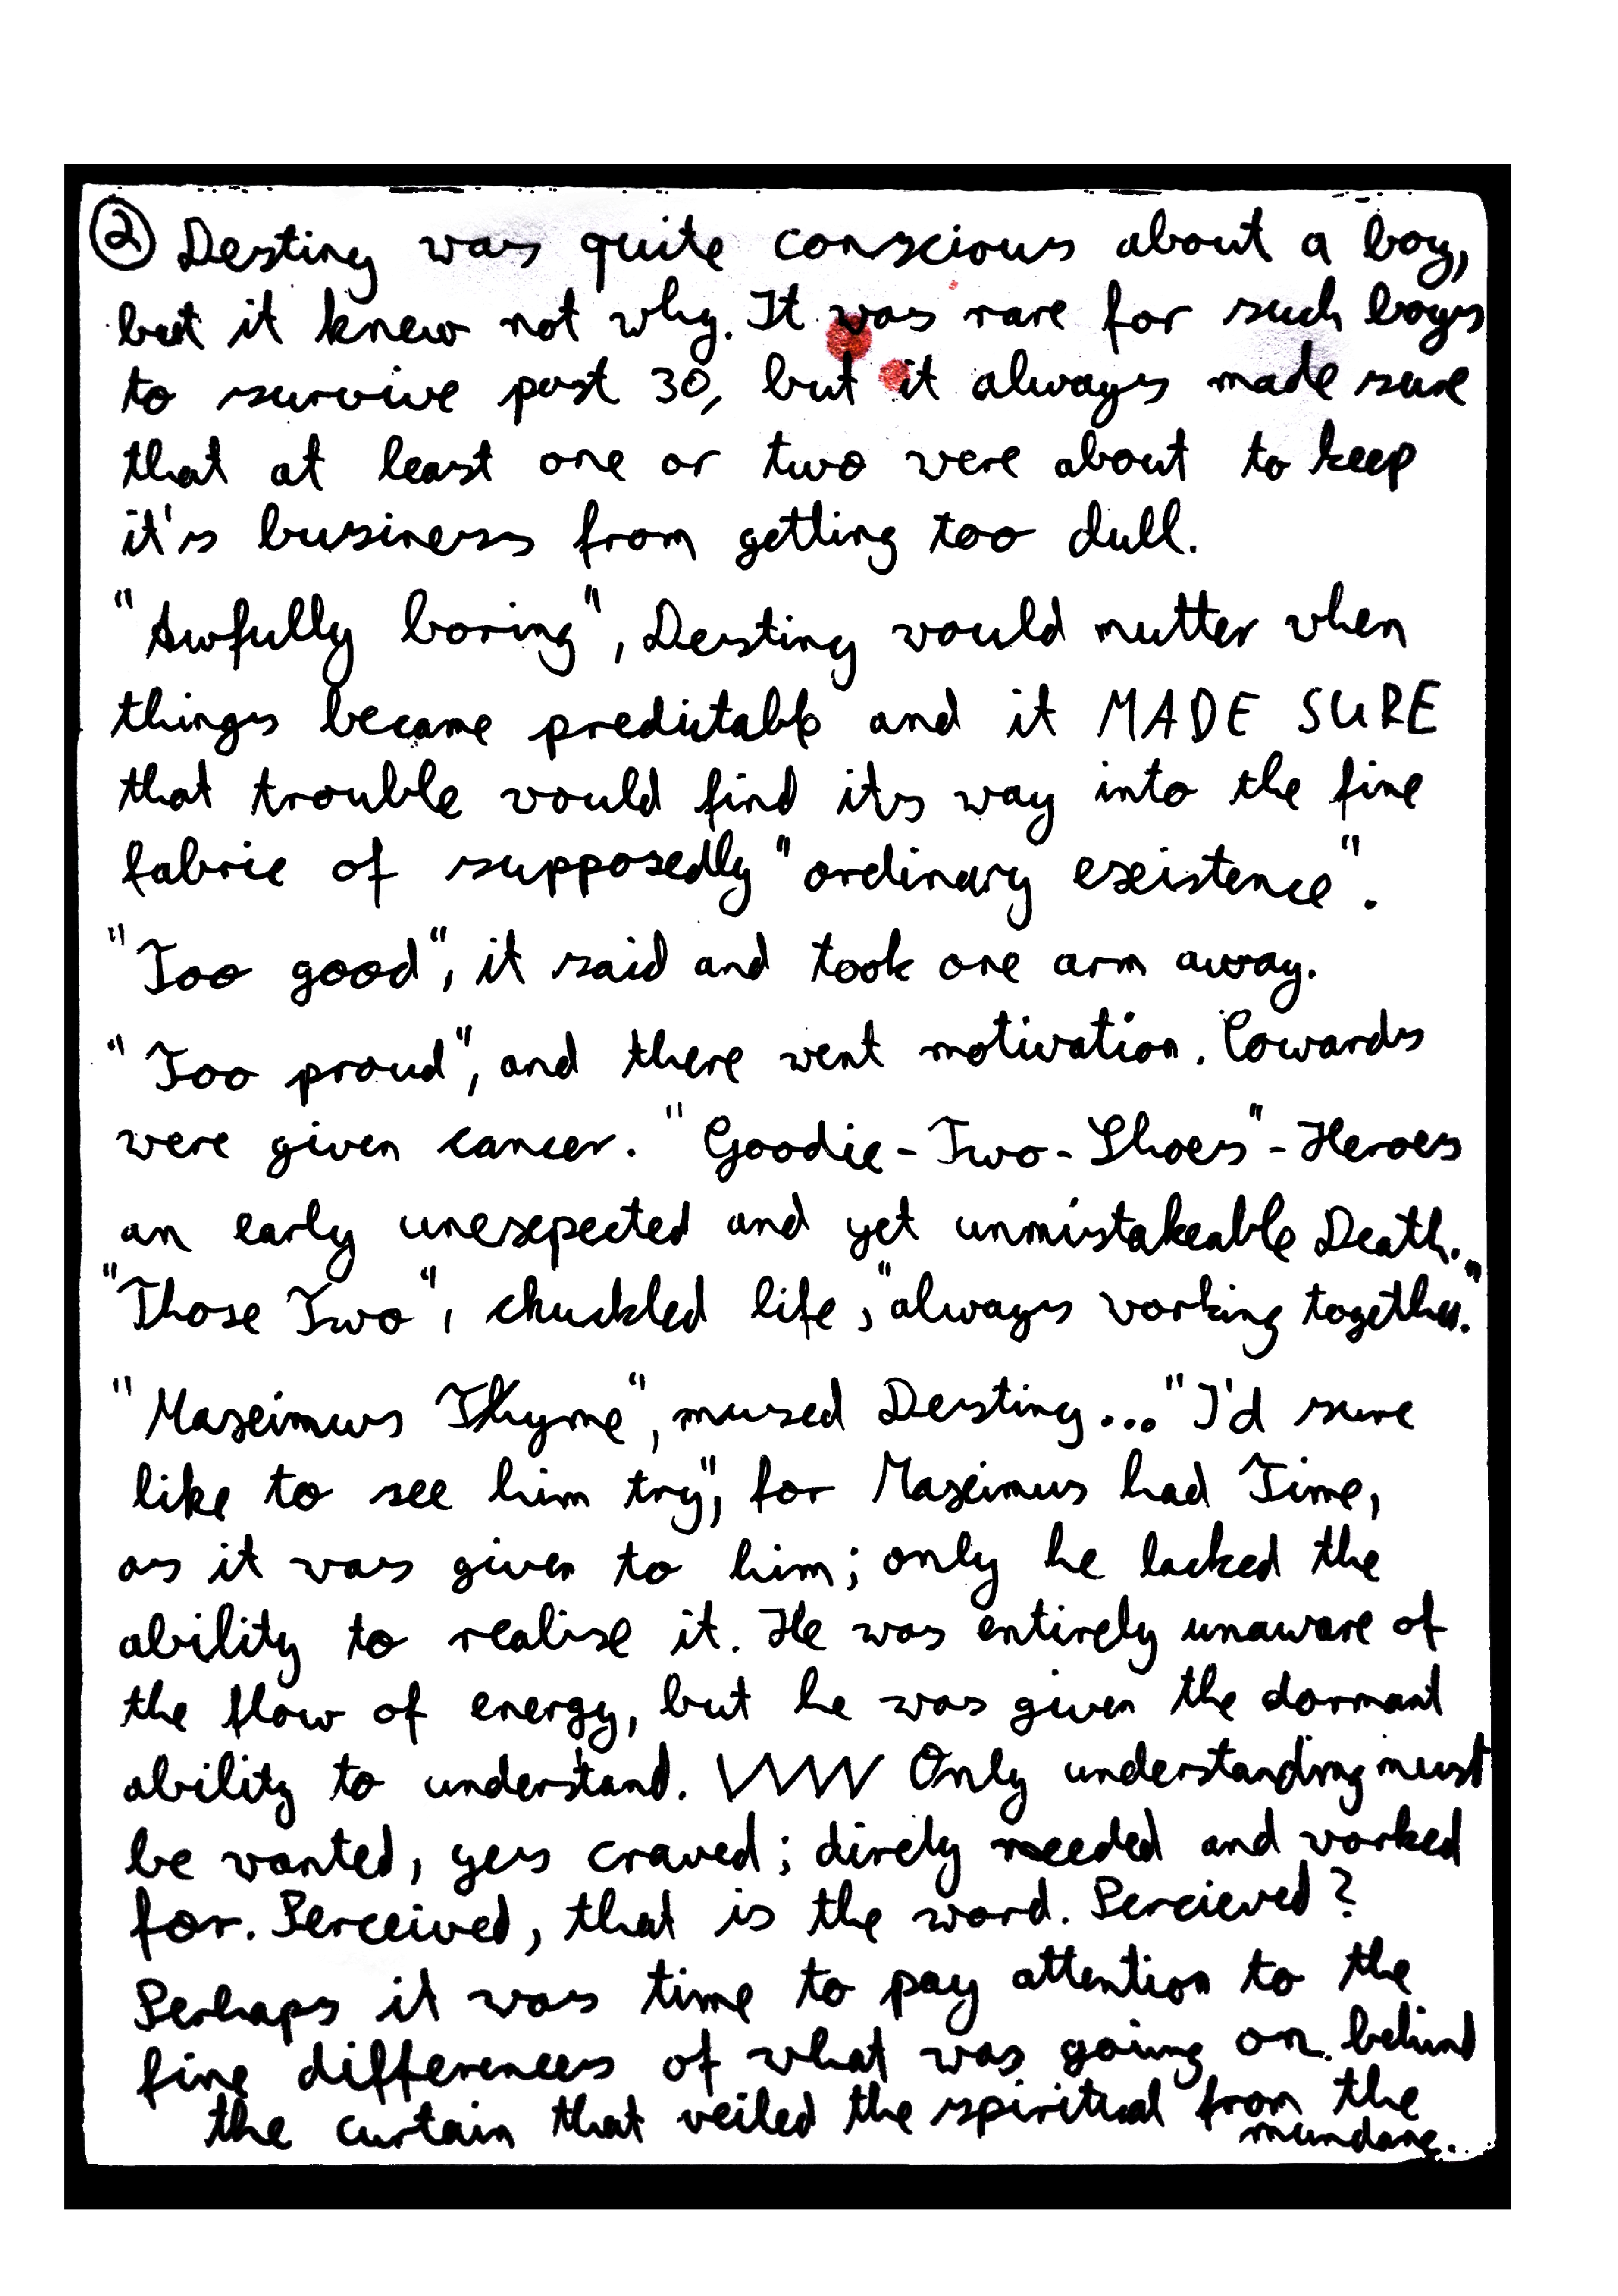 ② Destiny was quite conscious about a boy,
but it knew not why. It was rare for such boys
to survive past 30, but it always made sure
that at least one or two were about to keep
it's business from getting too dull.
"Awfully boring", Destiny would mutter when
things became predictable and it MADE SURE
that trouble would find its way into the fine
fabric of supposedly "ordinary existence".
"Too good", it said and took one arm away.
"Too proud", and there went motivation. Cowards
were given cancer. "Goodie-Two-Shoes"-Heroes
an early unexpected and yet unmistakeable Death.
"Those Two", chuckled life, "always working together."
"Maximus Thyme", mused Destiny... "I'd sure
like to see him try", for Maximus had Time,
as it was given to him; only he lacked the
ability to realise it. He was entirely unaware of
the flow of energy, but he was given the dormant
ability to understand. Only understanding must
be wanted, yes craved; direly needed and worked
for. Perceived, that is the word. Percieved?
Perhaps it was time to pay attention to the
fine differences of what was going on behind
the curtain that veiled the spiritual from the
mundane.